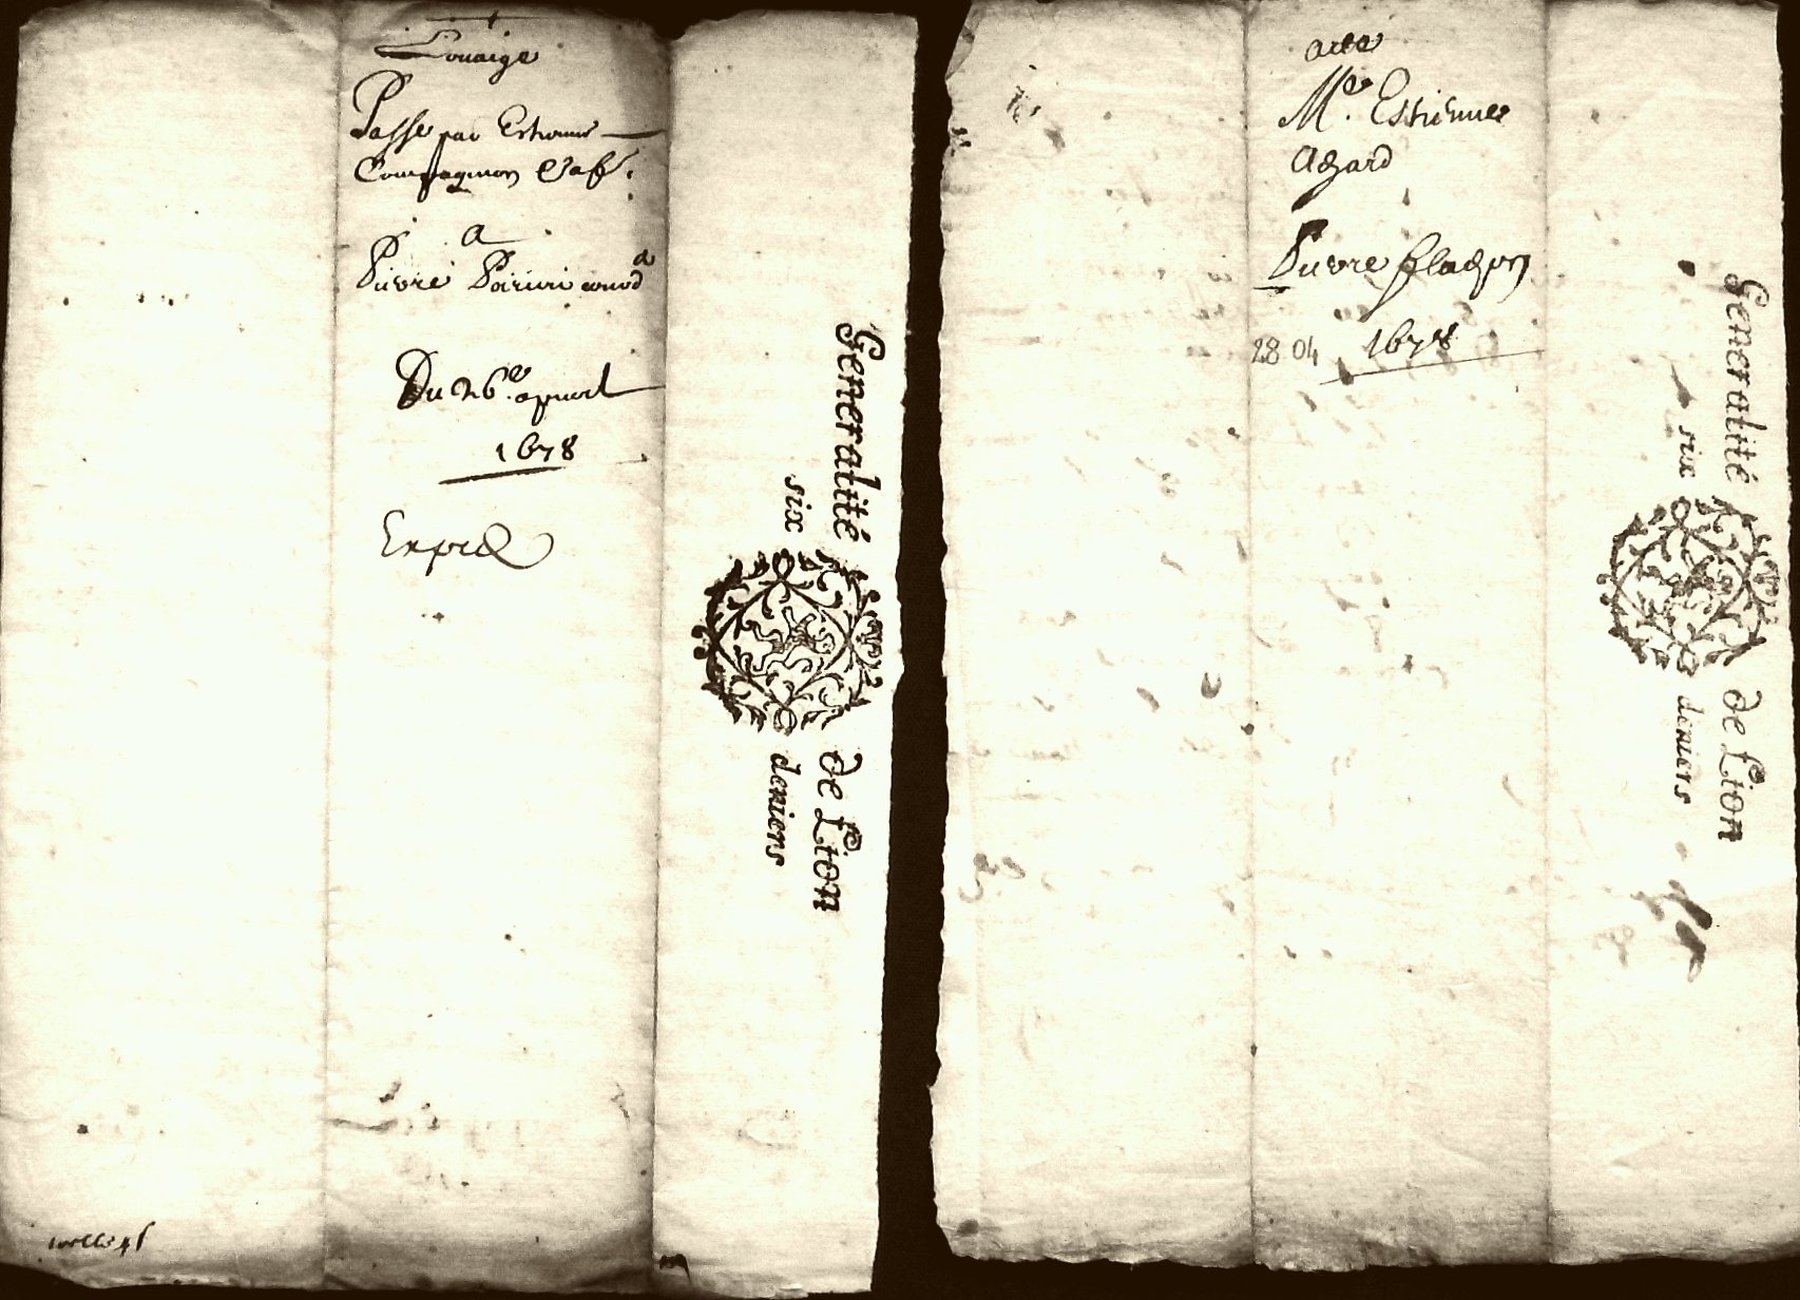 Louaige
Passe par Estienne
Compagnon
a
Pierre
Du 26e. apvril
1678
Exped
Generalité de Lion
six deniers
acte
Me. Estienne
Azard
Pierre flachon
28 04 1678
Generalité de Lion
six deniers